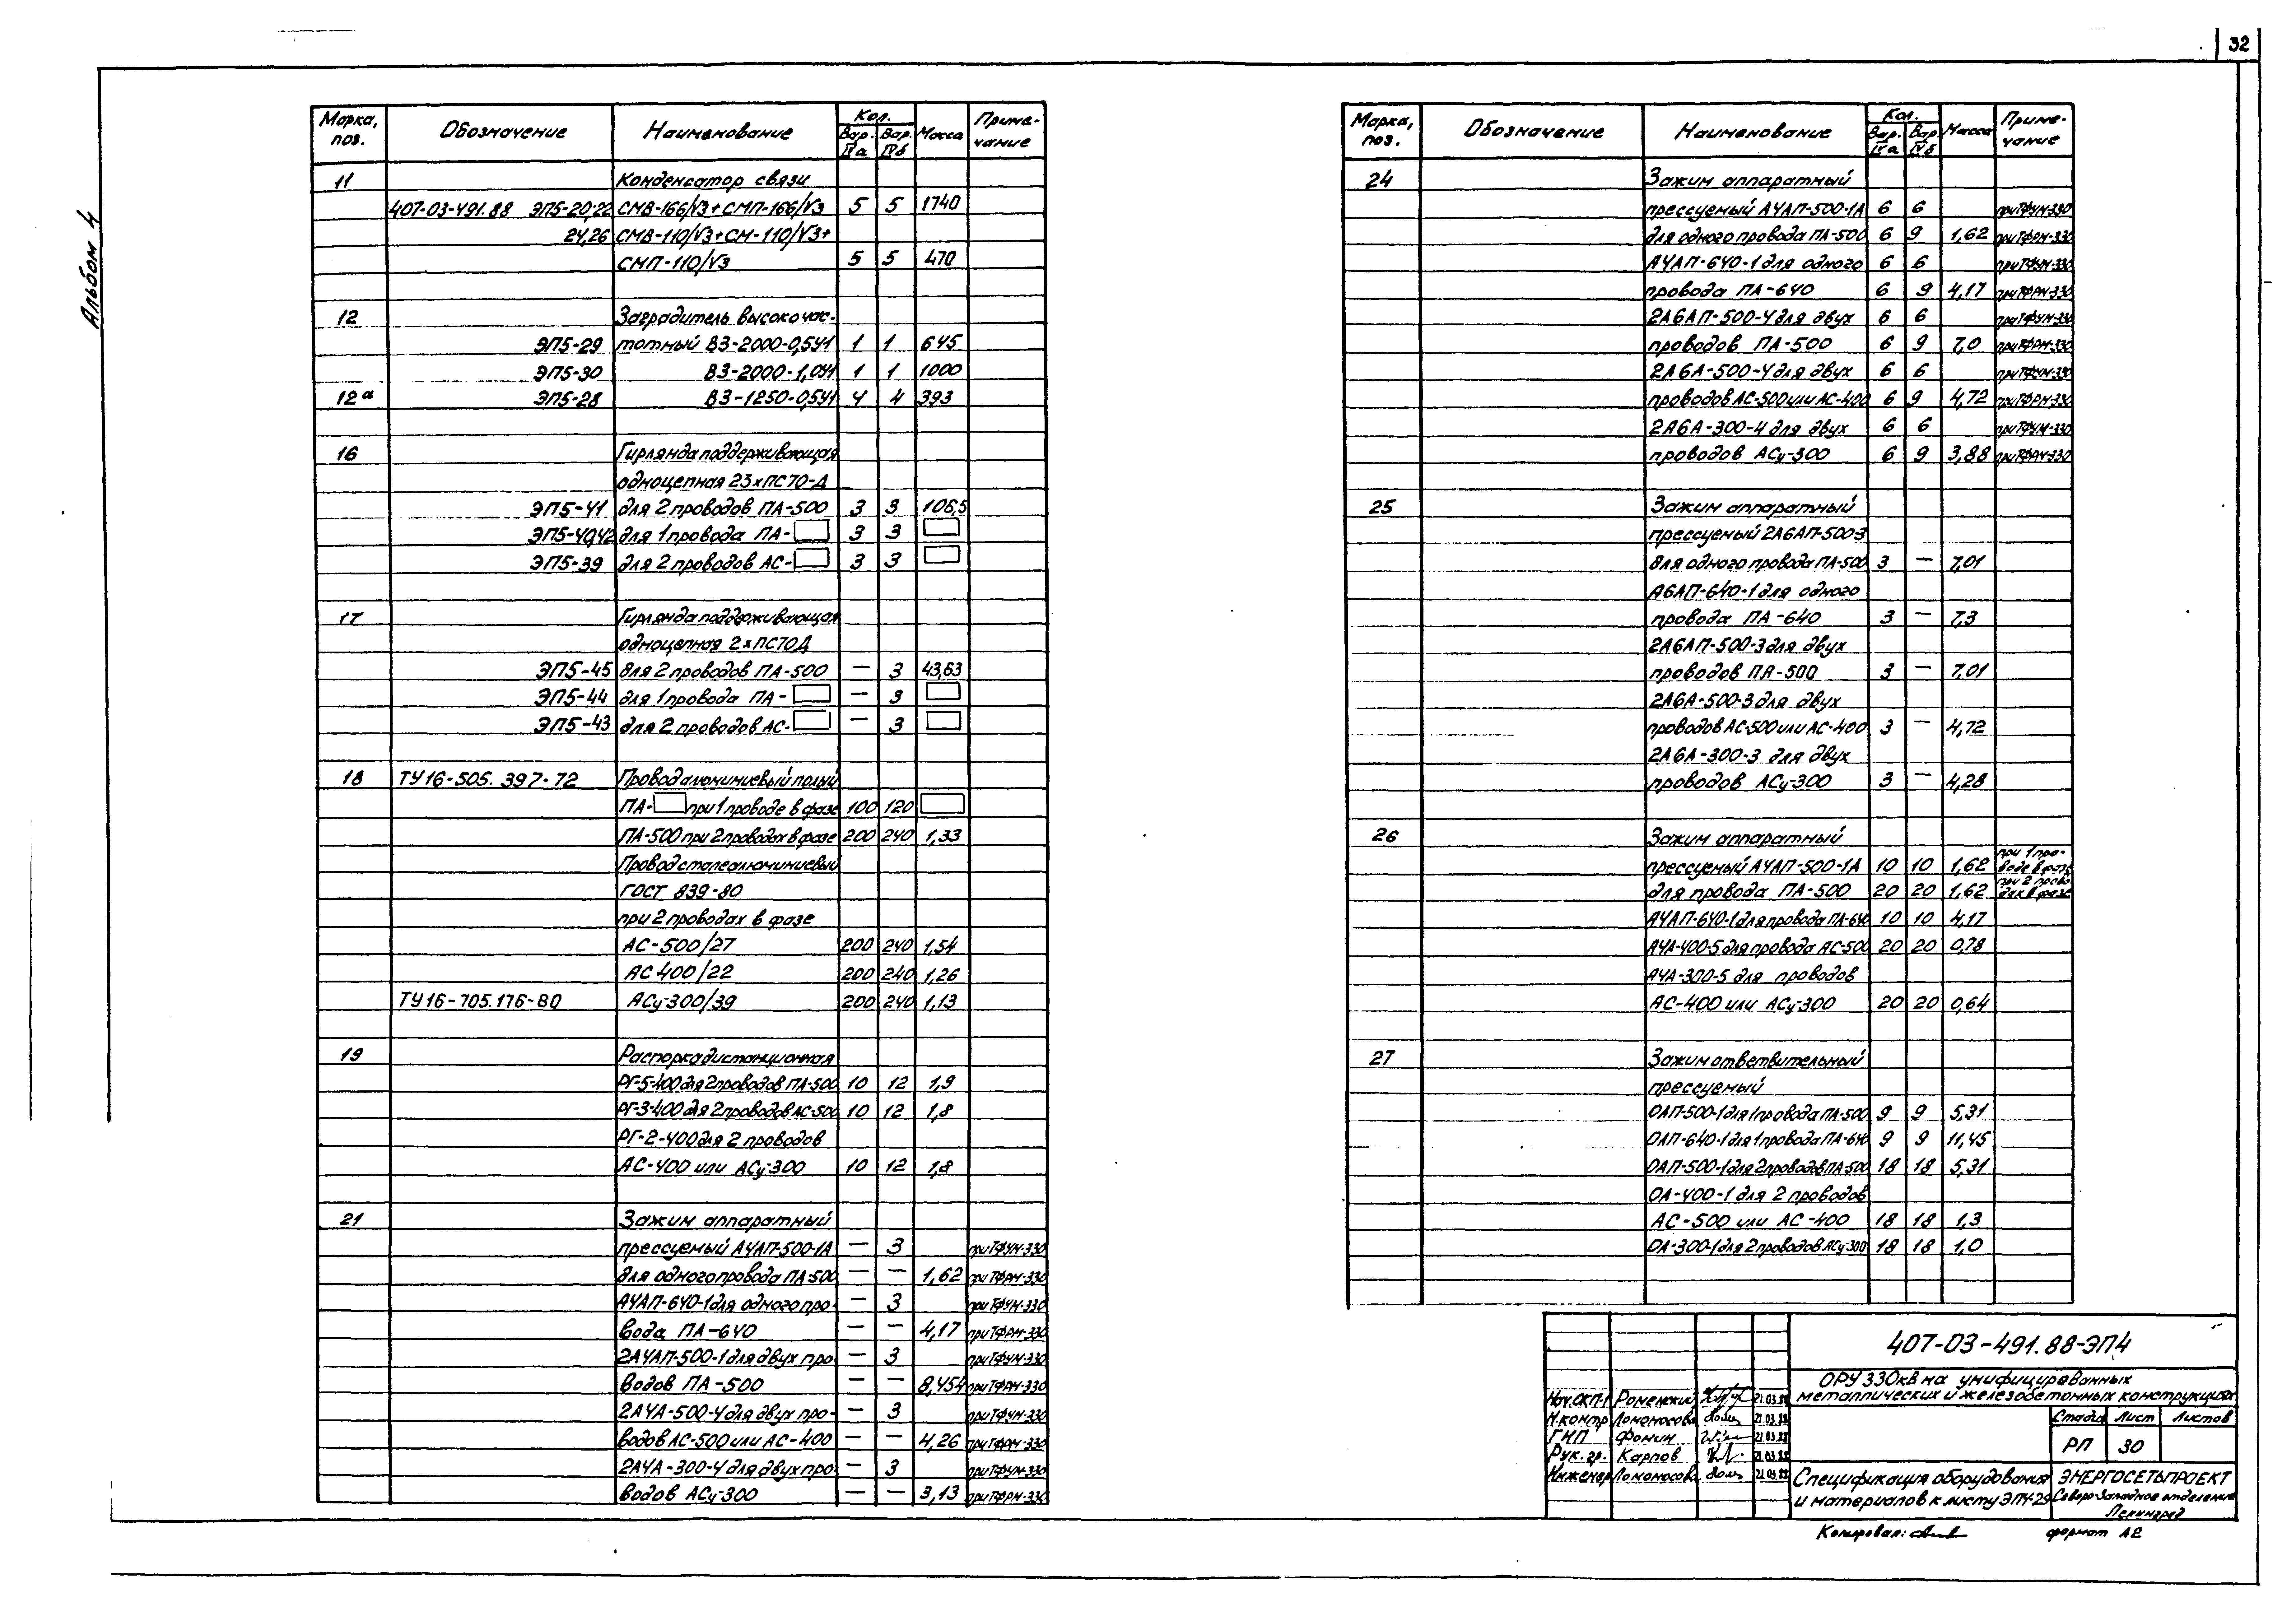 32
Альбом 4
Марка, поз. Обозначение Наименование Кол. Вар. IVа Вар. IVб Масса Примечание
11 Конденсатор связи
407-03-491.88 ЭП5-20;22 СМВ-166/√3+СМП-166/√3 5 5 1740
24,26 СМВ-110/√3+СМ-110/√3+
СМП-110/√3 5 5 470
12 Заградитель высокочас-
ЭП5-29 тотный ВЗ-2000-0,5У1 1 1 645
ЭП5-30 ВЗ-2000-1,0У1 1 1 1000
12а ЭП5-28 ВЗ-1250-0,5У1 4 4 393
16 Гирлянда поддерживающая
одноцепная 23хПС70-Д
ЭП5-41 для 2 проводов ПА-500 3 3 106,5
ЭП5-40,42 для 1 провода ПА- 3 3
ЭП5-39 для 2 проводов АС- 3 3
17 Гирлянда поддерживающая
одноцепная 2хПС70Д
ЭП5-45 для 2 проводов ПА-500 — 3 43,63
ЭП5-44 для 1 провода ПА- — 3
ЭП5-43 для 2 проводов АС- — 3
18 ТУ16-505.397-72 Провод алюминиевый полый
ПА- при 1 проводе в фазе 100 120
ПА-500 при 2 проводах в фазе 200 240 1,33
Провод сталеалюминиевый
ГОСТ 839-80
при 2 проводах в фазе
АС-500/27 200 240 1,54
АС 400/22 200 240 1,26
ТУ16-705.176-80 АСу-300/39 200 240 1,13
19 Распорка дистанционная
РГ-5-400 для 2 проводов ПА-500 10 12 1,9
РГ-3-400 для 2 проводов АС-500 10 12 1,8
РГ-2-400 для 2 проводов
АС-400 или АСу-300 10 12 1,8
21 Зажим аппаратный
прессуемый А4АП-500-1А — 3 при ТФУМ-330
для одного провода ПА-500 — — 1,62 при ТФРМ-330
А4АП-640-1 для одного про- — 3 при ТФУМ-330
вода ПА-640 — — 4,17 при ТФРМ-330
2А4АП-500-1 для двух про- — 3 при ТФУМ-330
водов ПА-500 — — 8,454 при ТФРМ-330
2А4А-500-4 для двух про- — 3 при ТФУМ-330
водов АС-500 или АС-400 — — 4,26 при ТФРМ-330
2А4А-300-4 для двух про- — 3 при ТФУМ-330
водов АСу-300 — — 3,13 при ТФРМ-330
Марка, поз. Обозначение Наименование Кол. Вар. IVа Вар. IVб Масса Примечание
24 Зажим аппаратный
прессуемый А4АП-500-1А 6 6 при ТФУМ-330
для одного провода ПА-500 6 9 1,62 при ТФРМ-330
А4АП-640-1 для одного 6 6 при ТФУМ-330
провода ПА-640 6 9 4,17 при ТФРМ-330
2А6АП-500-4 для двух 6 6 при ТФУМ-330
проводов ПА-500 6 9 7,0 при ТФРМ-330
2А6А-500-4 для двух 6 6 при ТФУМ-330
проводов АС-500 или АС-400 6 9 4,72 при ТФРМ-330
2А6А-300-4 для двух 6 6 при ТФУМ-330
проводов АСу-300 6 9 3,88 при ТФРМ-330
25 Зажим аппаратный
прессуемый 2А6АП-500-3
для одного провода ПА-500 3 — 7,01
А6АП-640-1 для одного
провода ПА-640 3 — 7,3
2А6АП-500-3 для двух
проводов ПА-500 3 — 7,01
2А6А-500-3 для двух
проводов АС-500 или АС-400 3 — 4,72
2А6А-300-3 для двух
проводов АСу-300 3 — 4,28
26 Зажим аппаратный
прессуемый А4АП-500-1А 10 10 1,62 при 1 про- воде в фазе
для провода ПА-500 20 20 1,62 при 2 прово- дах в фазе
А4АП-640-1 для провода ПА-640 10 10 4,17
А4А-400-5 для провода АС-500 20 20 0,78
А4А-300-5 для проводов
АС-400 или АСу-300 20 20 0,64
27 Зажим ответвительный
прессуемый
ОАП-500-1 для 1 провода ПА-500 9 9 5,31
ОАП-640-1 для 1 провода ПА-640 9 9 11,45
ОАП-500-1 для 2 проводов ПА-500 18 18 5,31
ОА-400-1 для 2 проводов
АС-500 или АС-400 18 18 1,3
ОА-300-1 для 2 проводов АСу-300 18 18 1,0
407-03-491.88-ЭП4
ОРУ 330кв на унифицированных
металлических и железобетонных конструкциях
Нач.ОКП-1 Роменский 21.03.88
Н.контр Ломоносова 21.03.88
ГИП Фомин 21.03.88
Рук. гр. Карпов 21.03.88
Инженер Ломоносова 21.03.88
Стадия Лист Листов
РП 30
Спецификация оборудования
и материалов к листу ЭП4-29
ЭНЕРГОСЕТЬПРОЕКТ
Северо-Западное отделение
Ленинград
Копировал:
формат А2